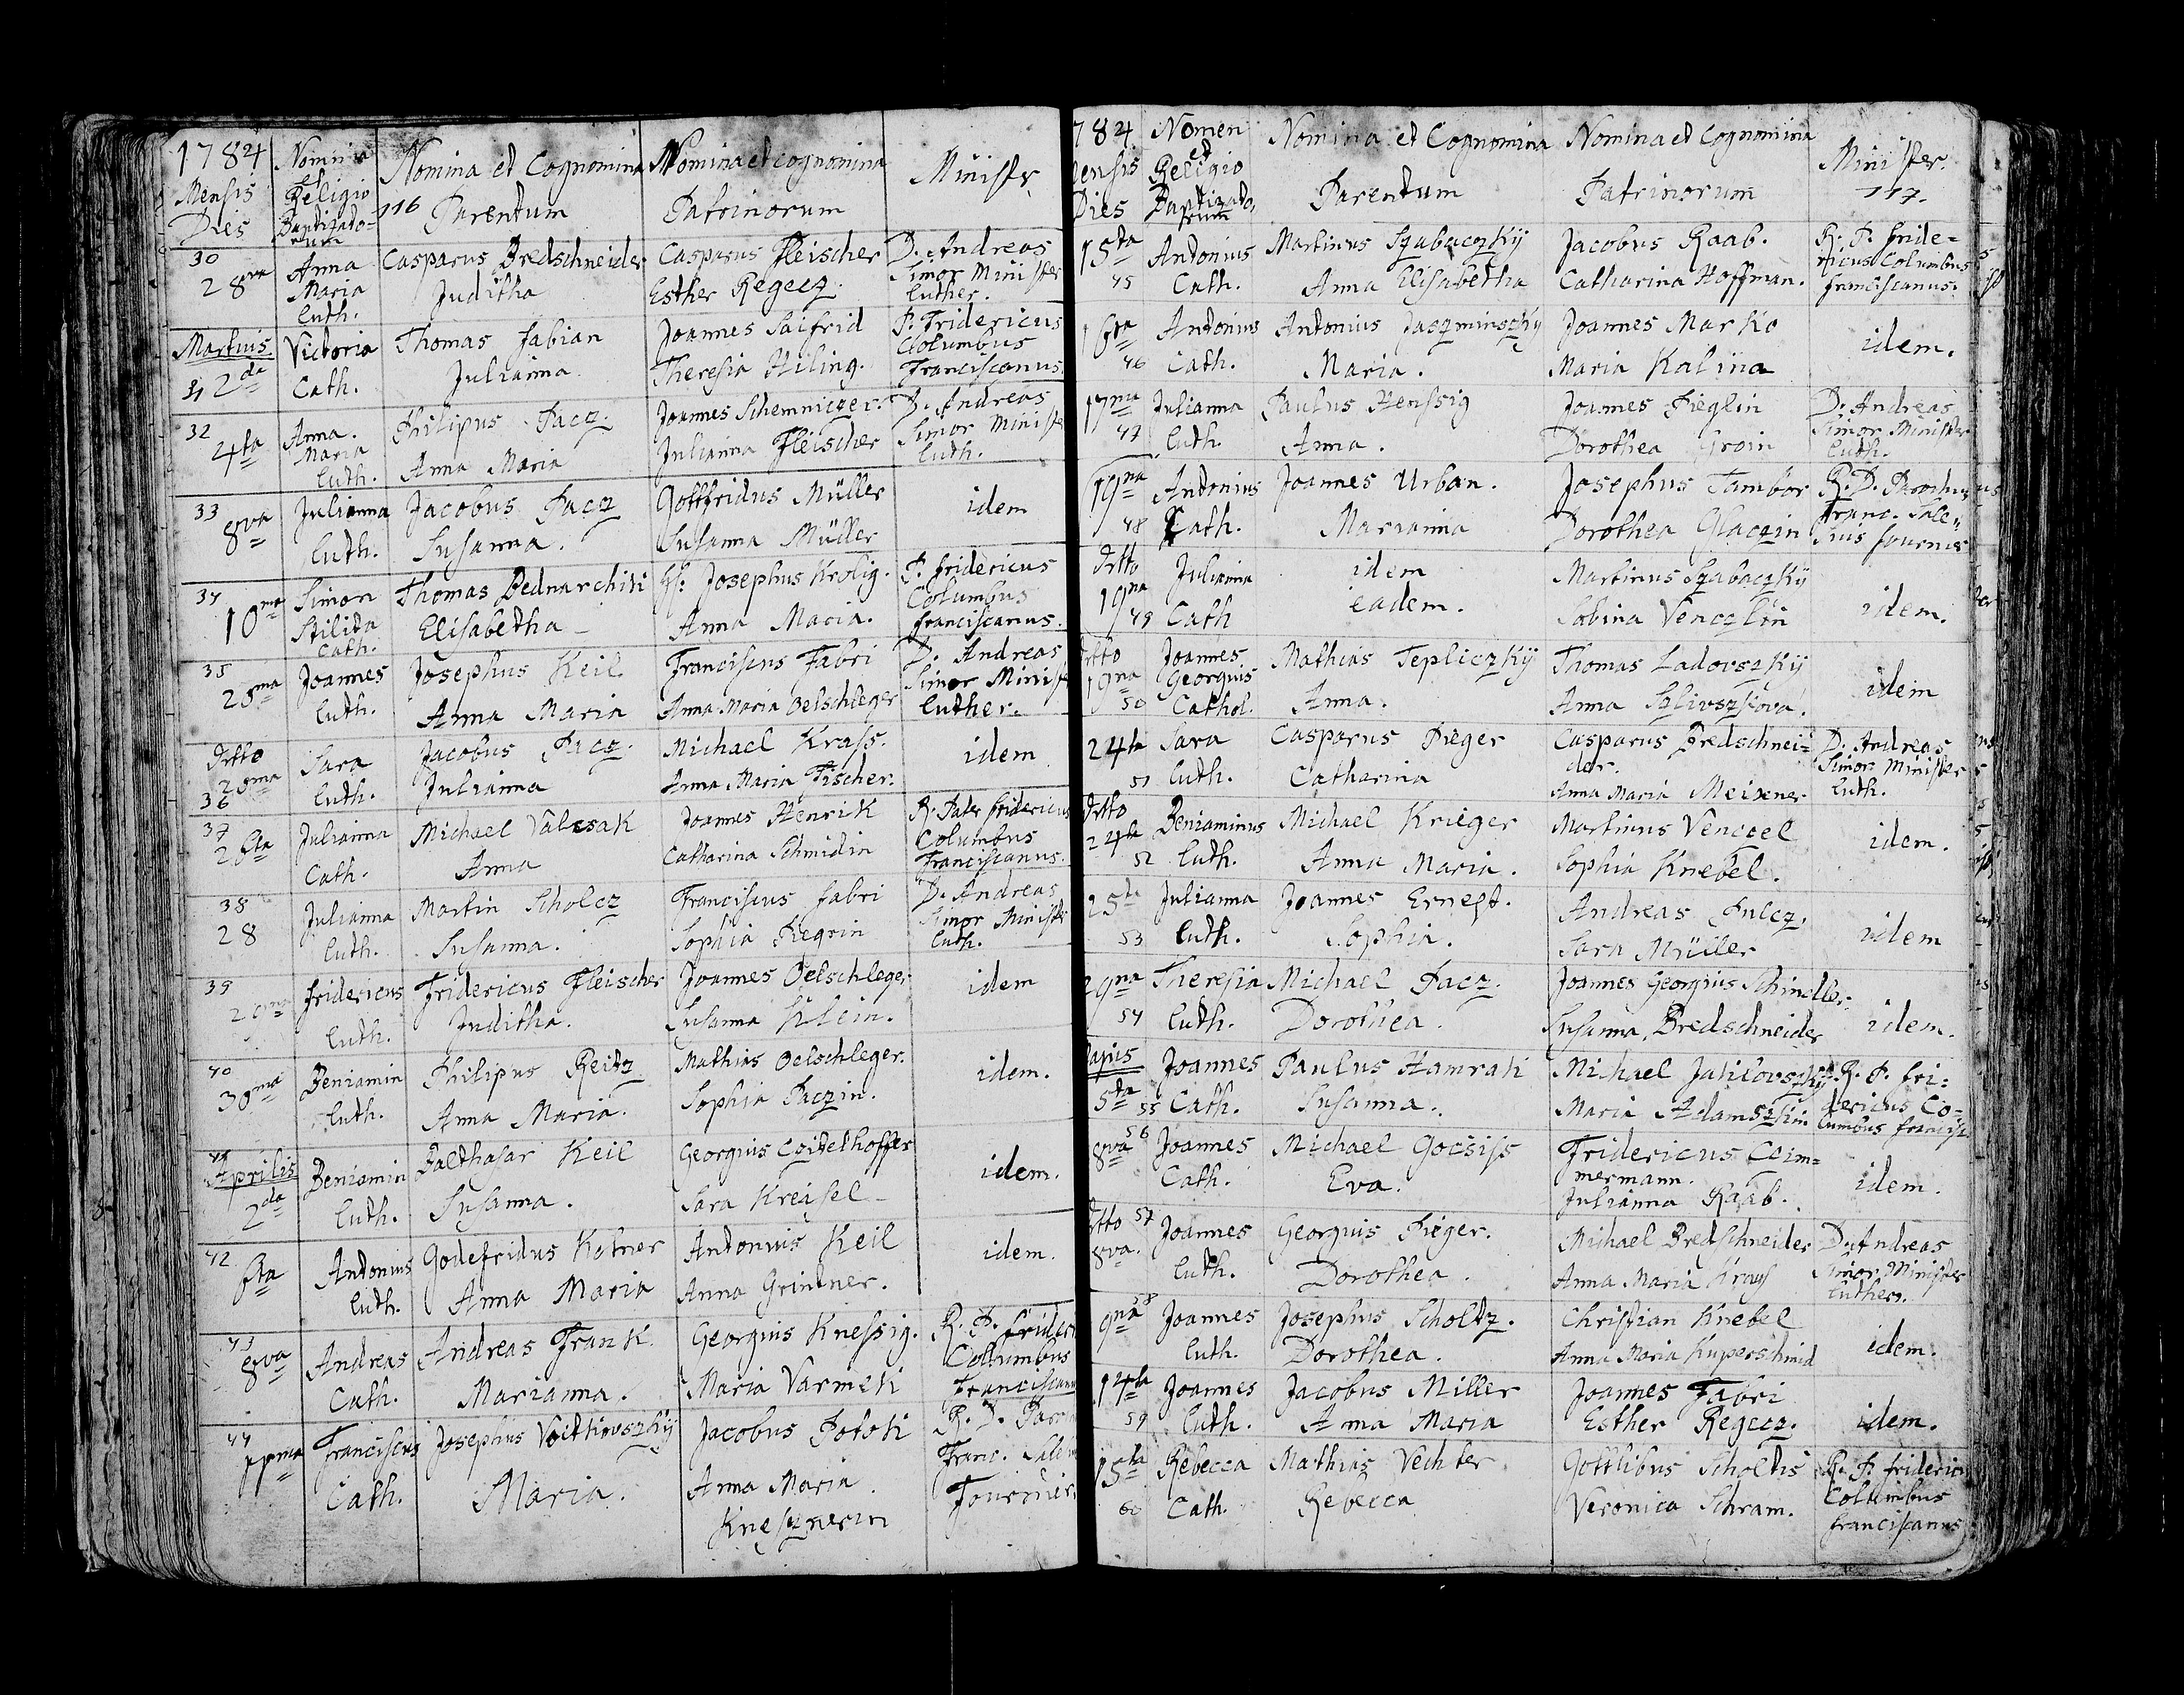 1784
Mensis
Dies
Nomina
et
Religio
Baptizato-
rum
116
Nomina et Cognomina
Parentum
Nomina et cognomina
Patrinorum
Ministr
30
28va
Anna
Maria
Luth.
Casparus Bredschneider
Juditha
Casparus Fleischer
Esther Regecz.
D. Andreas
Simor Minister
Luther.
Martius
31 2da
Victoria
Cath.
Thomas Fabian
Julianna
Joannes Saifrid
Theresia Hiling.
P. Fridericus
Columbus
Franciscanus.
32
4ta
Anna.
Maria
Luth.
Philipus Pacz.
Anna Maria
Joannes Schemniczer.
Julianna Fleischer
D. Andreas
Simor Ministe
Luth.
33
8va
Julianna
Luth.
Jacobus Pacz
Susanna.
Gottfridus Müller
Susanna Müller
idem
34
10ma
Simon
Stilita
Cath.
Thomas Bednarchik
Elisabetha
Josephus Krolig.
Anna Maria.
P. Fridericus
Columbus
Franciscanus.
35
25ma
Joannes
Luth.
Josephus Keil
Anna Maria
Franciscus Fabri
Anna Maria Oelschleger
D. Andreas
Simor Minist
Luther.
Ditto
25ma
36
Sara
Luth.
Jacobus Picz.
Julianna
Michael Krass.
Anna Maria Fischer.
idem
37
26ta
Julianna
Cath.
Michael Valesak
Anna
Joannes Henrik
Catharina Schmidin
R. Pater Fridericus
Columbus
Franciscanus.
38
28
Julianna
Luth.
Martin Scholcz
Susanna.
Franciscus Fabri
Sophia Piegrin
D. Andreas
Simor Minister
Luth.
39
Fridericus
Luth.
Fridericus Fleischer
Juditha.
Joannes Oelschleger
Susanna Klein.
idem
40
30ma
Beniamin
Luth.
Philipus Reitz
Anna Maria.
Mathias Oelschleger.
Sophia Paczin.
idem.
41
Aprilis
2da
Beniamin
Luth.
Balthasar Keil
Susanna.
Georgius Czitelhoffer
Sara Kreisel
idem.
42
6ta
Antonius
Luth.
Godefridus Kotner
Anna Maria
Antonius Keil
Anna Grintner.
idem.
43
8va
Andreas
Cath.
Andreas Frank.
Marianna.
Georgius Knessig.
Maria Varmek
R. P. Frider
Columbus
Franciscanu
44
11ma
Franciscus
Cath.
Josephus Voitkovszky
Maria.
Jacobus Potok
Anna Maria
Knesznerin
R. D.
Franc.
Fournier.
784
ensis
Dies
Nomen
et
Religio
Baptizato,
rum
Nomina et Cognomina
Parentum
Nomina et Cognomina
Patrinorum
Minister.
117.
15ta
45
Antonius
Cath.
Martinus Szabaczky
Anna Elisabetha
Jacobus Raab.
Catharina Hoffman.
R. P. Fride=
ricus Columbus
Franciscanus.
16ta
46
Antonius
Cath.
Antonius Jaszminszky
Maria.
Joannes Marko
Maria Kalina
idem.
17ma
47
Julianna
Luth.
Paulus Henssig
Anna.
Joannes Pieglin
Dorothea Groin
D. Andreas
Simor Minister
Luth.
19na
48
Antonius
Cath.
Joannes Urban.
Marianna
Josephus Tambor
Dorothea Glaczin
R. D. Parochus
Franc. Sale=
sius Fournier
Ditto
19na
49
Julianna
Cath
idem
eadem.
Martinus Szabaczky
Sabina Venczlin
idem.
Ditto
19na
50
Joannes
Georgius
Cathol.
Mathias Tepliczky
Anna.
Thomas Ladovszky
Anna Szlivszkova.
idem
24ta
51
Sara
Luth.
Casparus Pieger
Catharina
Casparus Bredschnei=
der.
Anna Maria Meixner
D. Andreas
Simor Minister
Luth.
Ditto
24ta
52
Beniaminus
Luth.
Michael Krieger
Anna Maria.
Martinus Venczel
Sophia Knebel.
idem.
25ta
53
Julianna
Luth.
Joannes Ernest.
Sophia.
Andreas Pulcz.
Sara Müller
idem
29na
54
Theresia
Luth.
Michael Pacz.
Dorothea.
Joannes Georgius Schindler.
Susanna Bredschneider
idem.
Majus
5ta 55
Joannes
Cath.
Paulus Hamrak
Susanna.
Michael Jakilovszky
Maria Adamszkin
R. P. Fri=
dericus Co=
lumbus Francisc
56
8va
Joannes
Cath.
Michael Gocsiss
Eva.
Fridericus Czim=
mermann.
Julianna Raab.
idem.
Ditto 57
8va.
Joannes
Luth.
Georgius Pieger.
Dorothea.
Michael Bredschneider
Anna Maria Krays
D. Andreas
Simor Minister
Luther.
58
9na
Joannes
Luth.
Josephus Scholtz.
Dorothea.
Christian Knebel
Anna Maria Kuperschmid
idem.
14ta
59
Joannes
Luth.
Jacobus Miller
Anna Maria
Joannes Fabri
Esther Regecz.
idem.
15ta
60
Rebecca
Cath.
Mathias Vechter
Rebecca
Gottlibus Scholtis
Veronica Schram.
R. P. Frideric
Columbus
Franciscanus